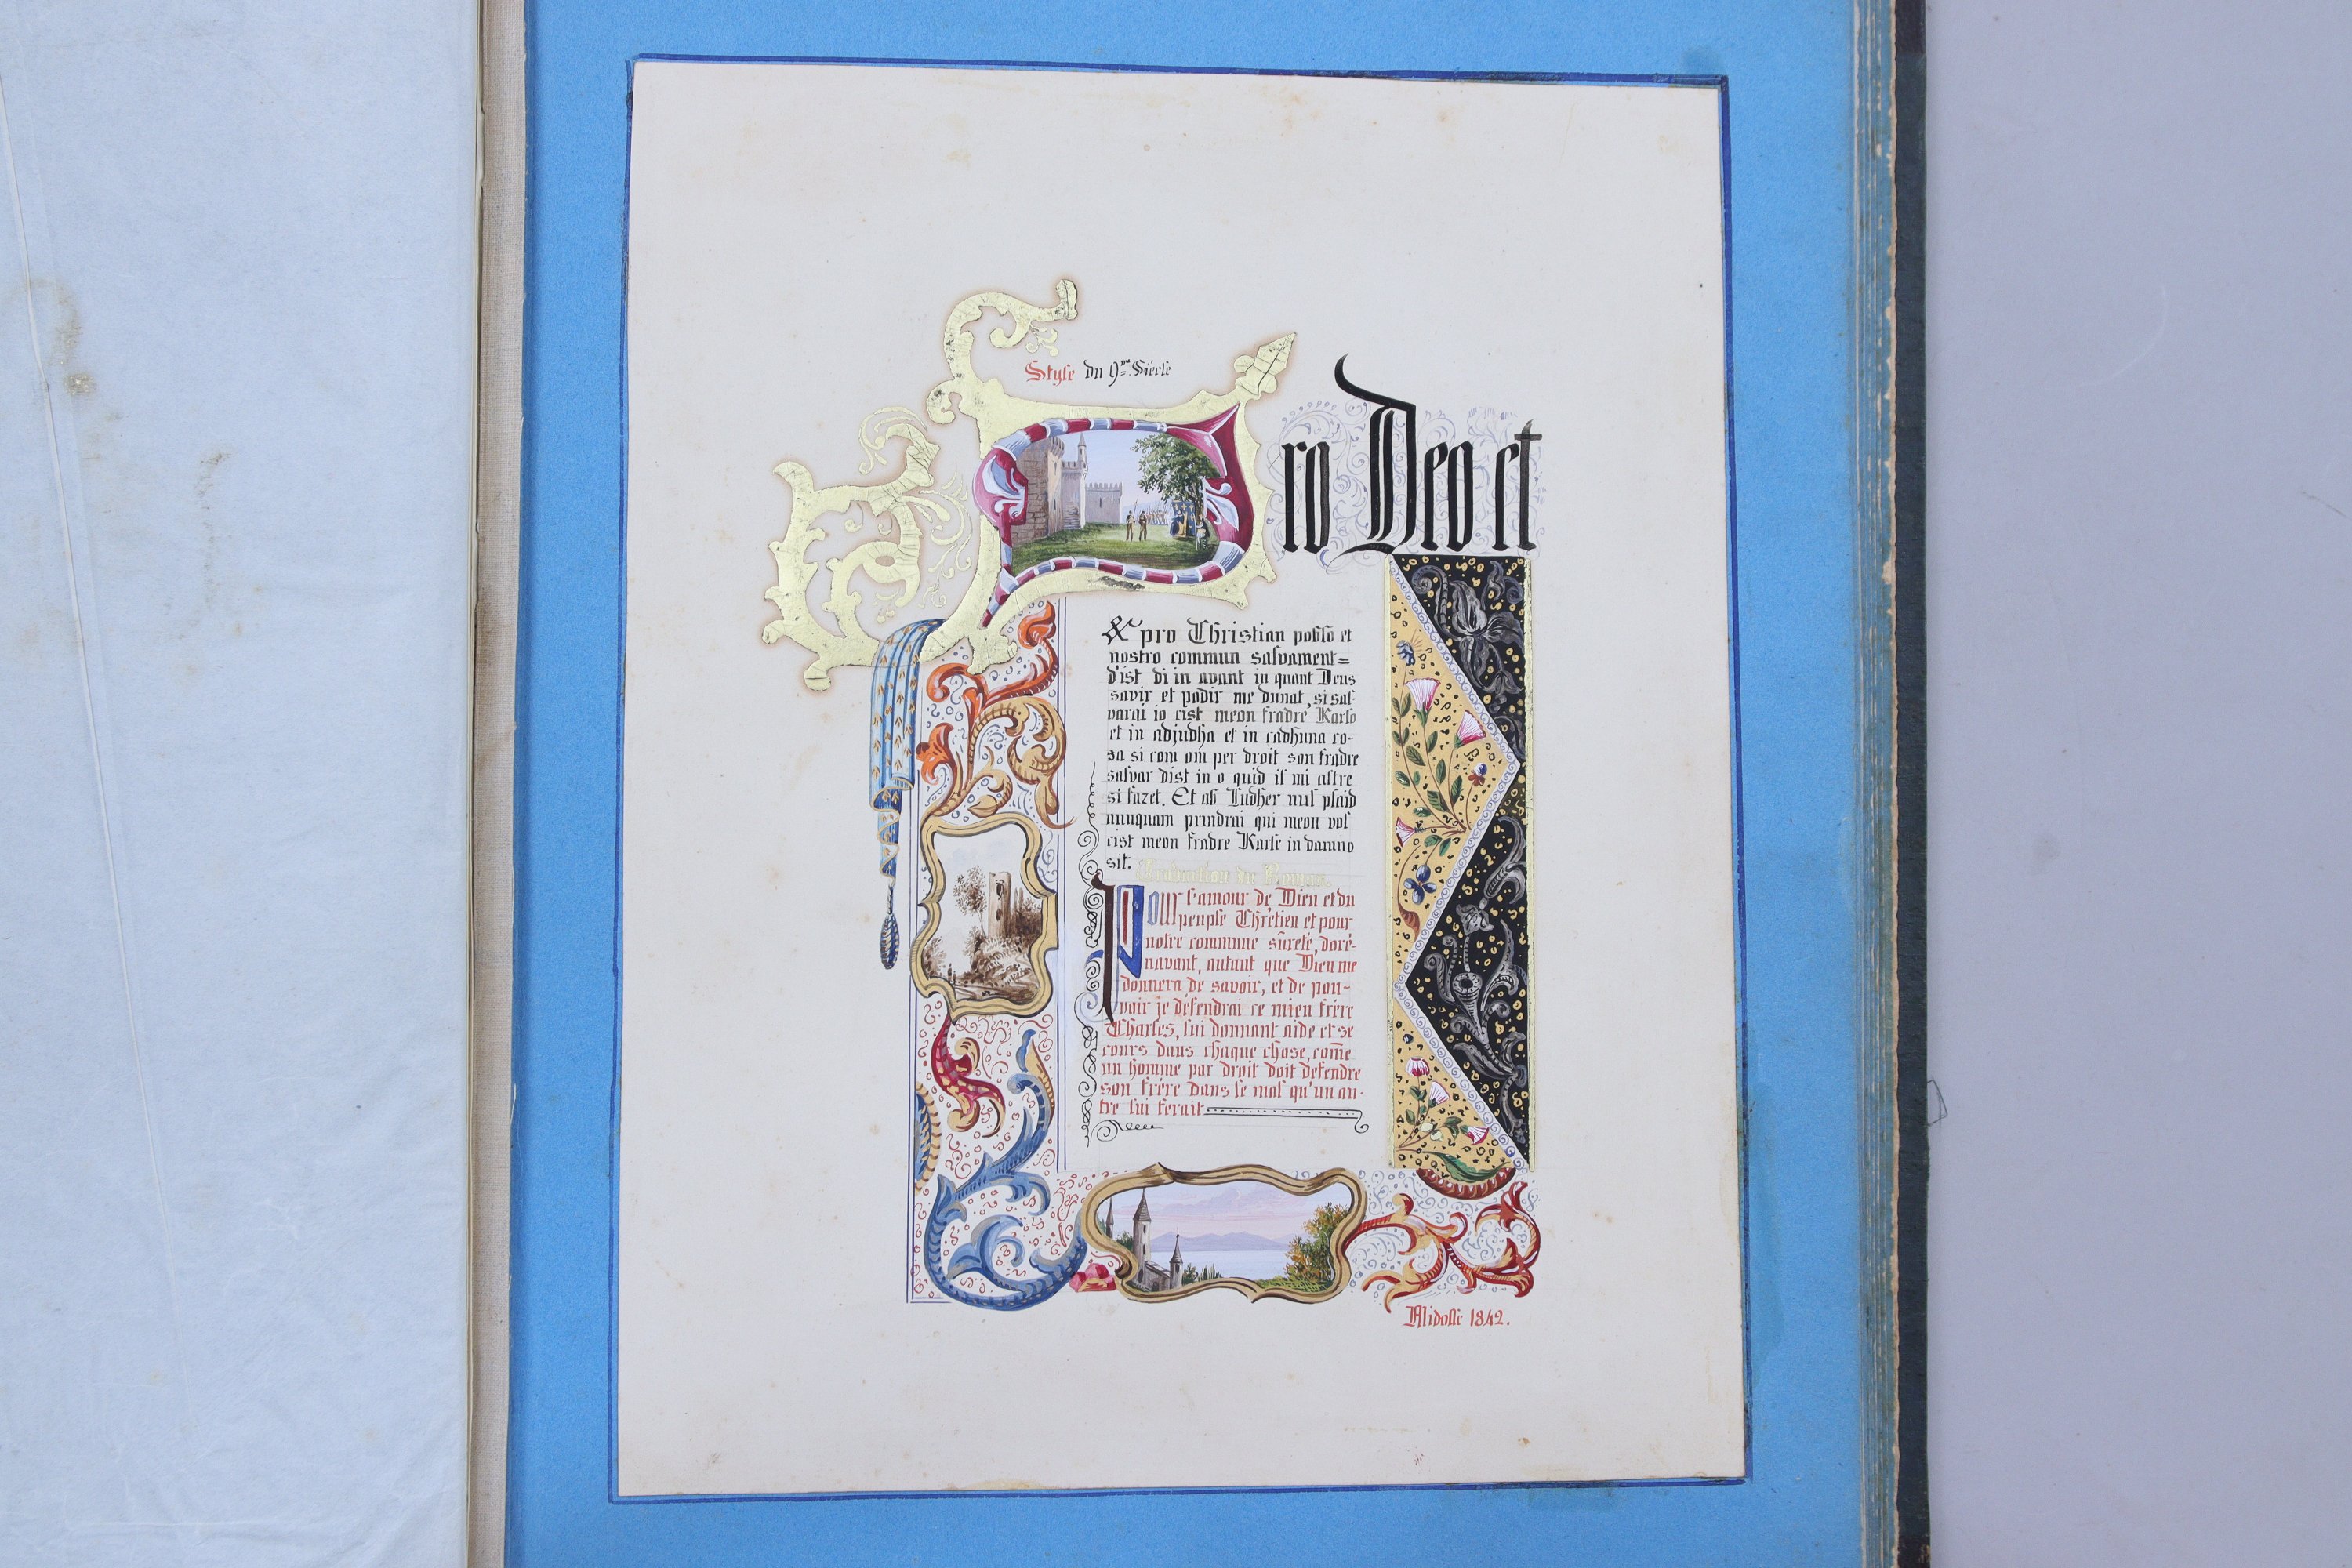 Style du 9me Siècle
Pro Deo et
& pro Christian poblo et
nostro commun salvament=
d'ist di in avant in quant Deus
savir et podir me dunat, si sal-
varai io cist meon fradre Karlo
et in adjudha et in cadhuna co-
sa si com om per droit son fradre
salvar dist in o quid il mi altre
si fazet. Et ab Ludher nul plaid
nunquam prindrai qui meon vol
cist meon fradre Karle in damno
sit.
Traduction du Roman.
Pour l'amour de Dieu et du
peuple Chrétien et pour
notre commune sûreté, doré-
navant, autant que Dieu me
donnera de savoir, et de pou-
voir je défendrai ce mien frère
Charles, lui donnant aide et se
cours dans chaque chose, com̄e
un homme par droit doit defendre
son frère dans le mal qu'un au-
tre lui ferait
Midolle 1842.